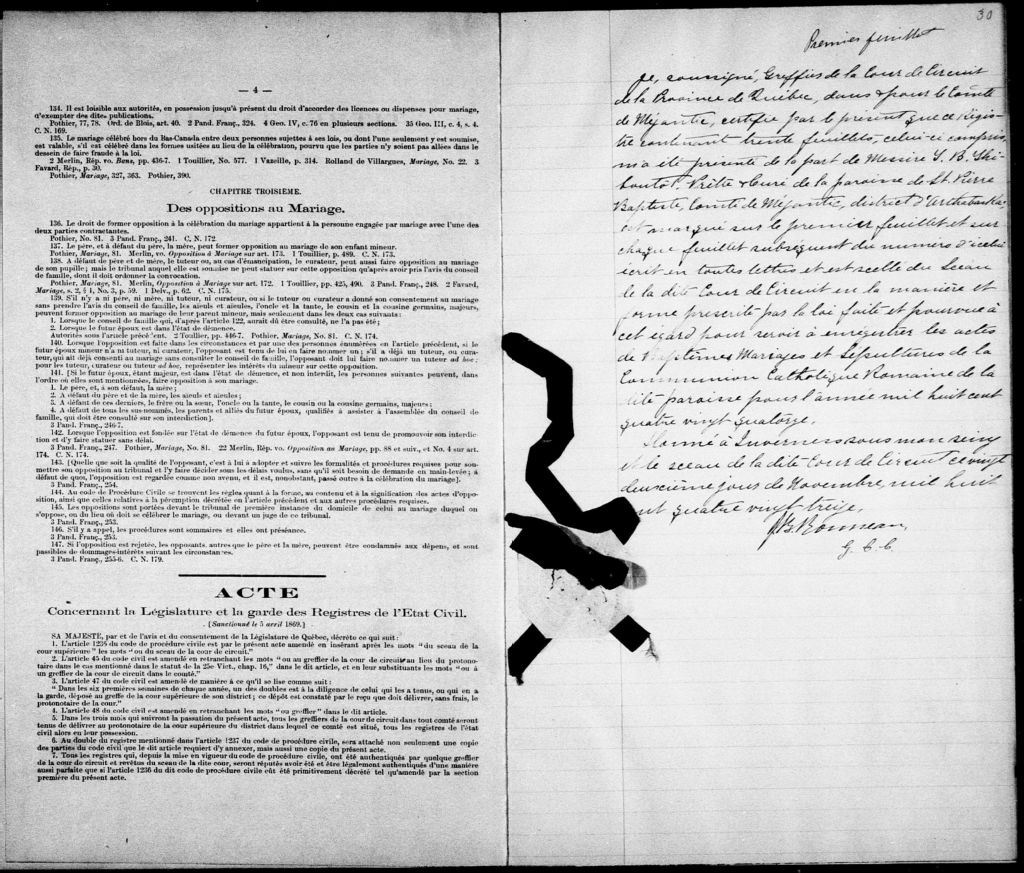 — 4 —
134. Il est loisible aux autorités, en possession jusqu'à présent du droit d'accorder des licences ou dispenses pour mariage,
d'exempter des dites publications.
Pothier, 77, 78. Ord. de Blois, art. 40. 2 Pand. Franç., 324. 4 Geo. IV, c. 76 en plusieurs sections. 35 Geo. III, c. 4, s. 4.
C. N. 169.
135. Le mariage célébré hors du Bas-Canada entre deux personnes sujettes à ses lois, ou dont l'une seulement y est soumise,
est valable, s'il est célébré dans les formes usitées au lieu de la célébration, pourvu que les parties n'y soient pas allées dans le
dessein de faire fraude à la loi.
2 Merlin, Rép. vo. Bans, pp. 436-7. 1 Touillier, No. 577. 1 Vazeille, p. 314. Rolland de Villargues, Mariage, No. 22. 3
Favard, Rép., p. 30.
Pothier, Mariage, 327, 363. Pothier, 390.
CHAPITRE TROISIEME.
Des oppositions au Mariage.
136. Le droit de former opposition à la célébration du mariage appartient à la personne engagée par mariage avec l'une des
deux parties contractantes.
Pothier, No. 81. 3 Pand. Franç., 241. C. N. 172.
137. Le père, et à défaut du père, la mère, peut former opposition au mariage de son enfant mineur.
Pothier, Mariage, 81. Merlin, vo. Opposition à Mariage sur art. 173. 1 Touillier, p. 489. C. N. 173.
138. A défaut de père et de mère, le tuteur ou, au cas d'émancipation, le curateur, peut aussi faire opposition au mariage
de son pupille; mais le tribunal auquel elle est soumise ne peut statuer sur cette opposition qu'après avoir pris l'avis du conseil
de famille, dont il doit ordonner la convocation.
Pothier, Mariage, 81. Merlin, Opposition à Mariage sur art. 172. 1 Touillier, pp. 425, 490. 3 Pand. Franç., 248. 2 Favard,
Mariage, s. 2, § 1, No. 3, p. 59. 1 Delv., p. 62. C. N. 175.
139. S'il n'y a ni père, ni mère, ni tuteur, ni curateur, ou si le tuteur ou curateur a donné son consentement au mariage
sans prendre l'avis du conseil de famille, les aïeuls et aïeules, l'oncle et la tante, le cousin et la cousine germains, majeurs,
peuvent former opposition au mariage de leur parent mineur, mais seulement dans les deux cas suivants:
1. Lorsque le conseil de famille qui, d'après l'article 122, aurait dû être consulté, ne l'a pas été;
2. Lorsque le futur époux est dans l'état de démence.
Autorités sous l'article précédent. 2 Toullier, pp. 446-7. Pothier, Mariage, No. 81. C. N. 174.
140. Lorsque l'opposition est faite dans les circonstances et par une des personnes énumérées en l'article précédent, si le
futur époux mineur n'a ni tuteur, ni curateur, l'opposant est tenu de lui en faire nommer un; s'il a déjà un tuteur, ou cura-
teur, qui ait déjà consenti au mariage sans consulter le conseil de famille, l'opposant doit lui faire nommer un tuteur ad hoc,
pour les tuteur, curateur ou tuteur ad hoc, représenter les intérêts du mineur sur cette opposition.
141. [Si le futur époux, étant majeur, est dans l'état de démence, et non interdit, les personnes suivantes peuvent, dans
l'ordre où elles sont mentionnées, faire opposition à son mariage.
1. Le père, et, à son défaut, la mère;
2. A défaut du père et de la mère, les aïeuls et aïeules;
3. A défaut de ces derniers, le frère ou la sœur, l'oncle ou la tante, le cousin ou la cousine germains, majeurs;
4. A défaut de tous les sus-nommés, les parents et alliés du futur époux, qualifiés à assister à l'assemblée du conseil de
famille, qui doit être consulté sur son interdiction].
3 Pand. Franç., 246-7.
142. Lorsque l'opposition est fondée sur l'état de démence du futur époux, l'opposant est tenu de promouvoir son interdic-
tion et d'y faire statuer sans délai.
3 Pand. Franç., 247. Pothier, Mariage, No. 81. 22 Merlin, Rép. vo. Opposition au Mariage, pp. 88 et suiv., et No. 4 sur art.
174. C. N. 174.
143. [Quelle que soit la qualité de l'opposant, c'est à lui à adopter et suivre les formalités et procédures requises pour sou-
mettre son opposition au tribunal et l'y faire décider sous les délais voulus, sans qu'il soit besoin de demande en main-levée; à
défaut de quoi, l'opposition est regardée comme non avenue, et il est, nonobstant, passé outre à la célébration du mariage].
3 Pand. Franç., 254.
144. Au code de Procédure Civile se trouvent les règles quant à la forme, au contenu et à la signification des actes d'oppo-
sition, ainsi que celles relatives à la péremption décrétée en l'article précédent et aux autres procédures requises.
145. Les oppositions sont portées devant le tribunal de première instance du domicile de celui au mariage duquel on
s'oppose, ou du lieu où doit se célébrer le mariage, ou devant un juge de ce tribunal.
3 Pand. Franç., 253.
146. S'il y a appel, les procédures sont sommaires et elles ont préséance.
3 Pand. Franç., 253.
147. Si l'opposition est rejetée, les opposants, autres que le père et la mère, peuvent être condamnés aux dépens, et sont
passibles de dommages-intérêts suivant les circonstances.
3 Pand. Franç., 255-6. C. N. 179.
ACTE
Concernant la Législature et la garde des Registres de l'Etat Civil.
[Sanctionné le 5 avril 1869.]
SA MAJESTÉ, par et de l'avis et du consentement de la Législature de Québec, décrète ce qui suit:
1. L'article 1236 du code de procédure civile est par le présent acte amendé en insérant après les mots "du sceau de la
cour supérieure" les mots "ou du sceau de la cour de circuit."
2. L'article 45 du code civil est amendé en retranchant les mots "ou au greffier de la cour de circuit au lieu du protono-
taire dans le cas mentionné dans le statut de la 25e Vict., chap. 16," dans le dit article, et en leur substituants les mots "ou à
un greffier de la cour de circuit dans le comté."
3. L'article 47 du code civil est amendé de manière à ce qu'il se lise comme suit:
"Dans les six premières semaines de chaque année, un des doubles est à la diligence de celui qui les a tenus, ou qui en a
la garde, déposé au greffe de la cour supérieure de son district; ce dépôt est constaté par le reçu que doit délivrer, sans frais, le
protonotaire de la cour."
4. L'article 48 du code civil est amendé en retranchant les mots "ou greffier" dans le dit article.
5. Dans les trois mois qui suivront la passation du présent acte, tous les greffiers de la cour de circuit dans tout comté seront
tenus de délivrer au protonotaire de la cour supérieure du district dans lequel ce comté est situé, tous les registres de l'état
civil alors en leur possession.
6. Au double du registre mentionné dans l'article 1237 du code de procédure civile, sera attaché non seulement une copie
des parties du code civil que le dit article requiert d'y annexer, mais aussi une copie du présent acte.
7. Tous les registres qui, depuis la mise en vigueur du code de procédure civile, ont été authentiqués par quelque greffier
de la cour de circuit et revêtus du sceau de la dite cour, seront réputés avoir été et être légalement authentiqués d'une manière
aussi parfaite que si l'article 1236 du dit code de procédure civile eût été primitivement décrété tel qu'amendé par la section
première du présent acte.
30
Premier feuillet
Je, soussigné, Greffier de la Cour de Circuit
de la Province de Québec, dans & pour le Comté
de Mégantic, certifie par le présent que ce régis-
tre contenant trente feuillets, celui-ci compris,
m'a été présenté de la part de Messire J. B. Thi-
boutôt. Prêtre & curé de la paroisse de St. Pierre
Baptiste, Comté de Mégantic, district d'Arthabaska
est marqué sur le premier feuillet et sur
chaque feuillet subséquent du numéro d'icelui
écrit en toutes lettres et est scellé du Sceau
de la dite Cour de Circuit en la manière et
forme prescrite par la loi faite et pourvue à
cet égard pour servir à enregistrer les actes
de Baptêmes Mariages et Sépultures de la
Communion Catholique Romaine de la
dite paroisse pour l'année mil huit cent
quatre vingt quatorze.
Donné à Inverness sous mon seing
et le sceau de la dite Cour de Circuit ce vingt
deuxième jour de Novembre, mil huit
cent quatre vingt treize.
G. C. C.